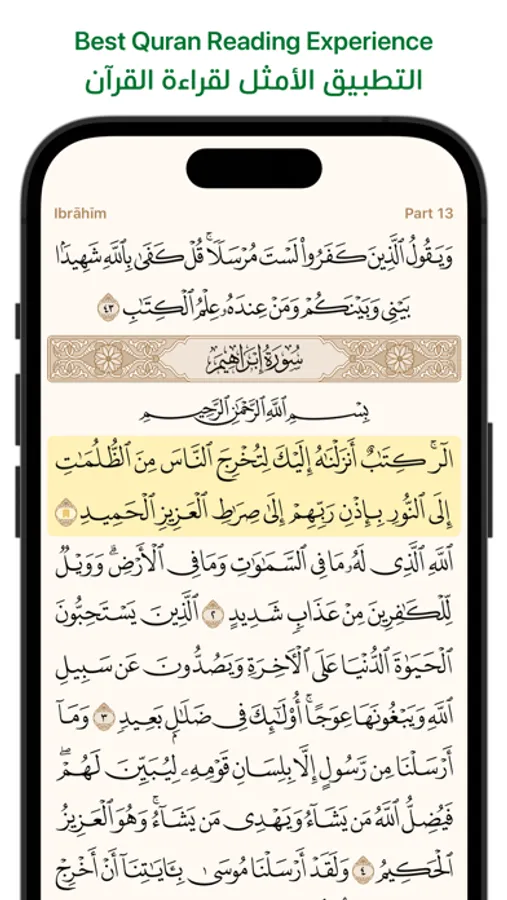 Best Quran Reading Experience
التطبيق الأمثل لقراءة القرآن
Ibrāhīm Part 13
وَيَقُولُ ٱلَّذِينَ كَفَرُواْ لَسۡتَ مُرۡسَلٗاۚ قُلۡ كَفَىٰ بِٱللَّهِ شَهِيدَۢا
بَيۡنِي وَبَيۡنَكُمۡ وَمَنۡ عِندَهُۥ عِلۡمُ ٱلۡكِتَٰبِ ٤٣
سُورَةُ إِبۡرَاهِيمَ
بِسۡمِ ٱللَّهِ ٱلرَّحۡمَٰنِ ٱلرَّحِيمِ
الٓرۚ كِتَٰبٌ أَنزَلۡنَٰهُ إِلَيۡكَ لِتُخۡرِجَ ٱلنَّاسَ مِنَ ٱلظُّلُمَٰتِ
إِلَى ٱلنُّورِ بِإِذۡنِ رَبِّهِمۡ إِلَىٰ صِرَٰطِ ٱلۡعَزِيزِ ٱلۡحَمِيدِ
ٱللَّهِ ٱلَّذِي لَهُۥ مَا فِي ٱلسَّمَٰوَٰتِ وَمَا فِي ٱلۡأَرۡضِۗ وَوَيۡلٞ
لِّلۡكَٰفِرِينَ مِنۡ عَذَابٖ شَدِيدٍ ٢ ٱلَّذِينَ يَسۡتَحِبُّونَ
ٱلۡحَيَوٰةَ ٱلدُّنۡيَا عَلَى ٱلۡأٓخِرَةِ وَيَصُدُّونَ عَن سَبِيلِ
ٱللَّهِ وَيَبۡغُونَهَا عِوَجًاۚ أُوْلَٰٓئِكَ فِي ضَلَٰلِۭ بَعِيدٖ ٣ وَمَآ
أَرۡسَلۡنَا مِن رَّسُولٍ إِلَّا بِلِسَانِ قَوۡمِهِۦ لِيُبَيِّنَ لَهُمۡۖ
فَيُضِلُّ ٱللَّهُ مَن يَشَآءُ وَيَهۡدِي مَن يَشَآءُۚ وَهُوَ ٱلۡعَزِيزُ
ٱلۡحَكِيمُ ٤ وَلَقَدۡ أَرۡسَلۡنَا مُوسَىٰ بِـَٔايَٰتِنَآ أَنۡ أَخۡرِجۡ